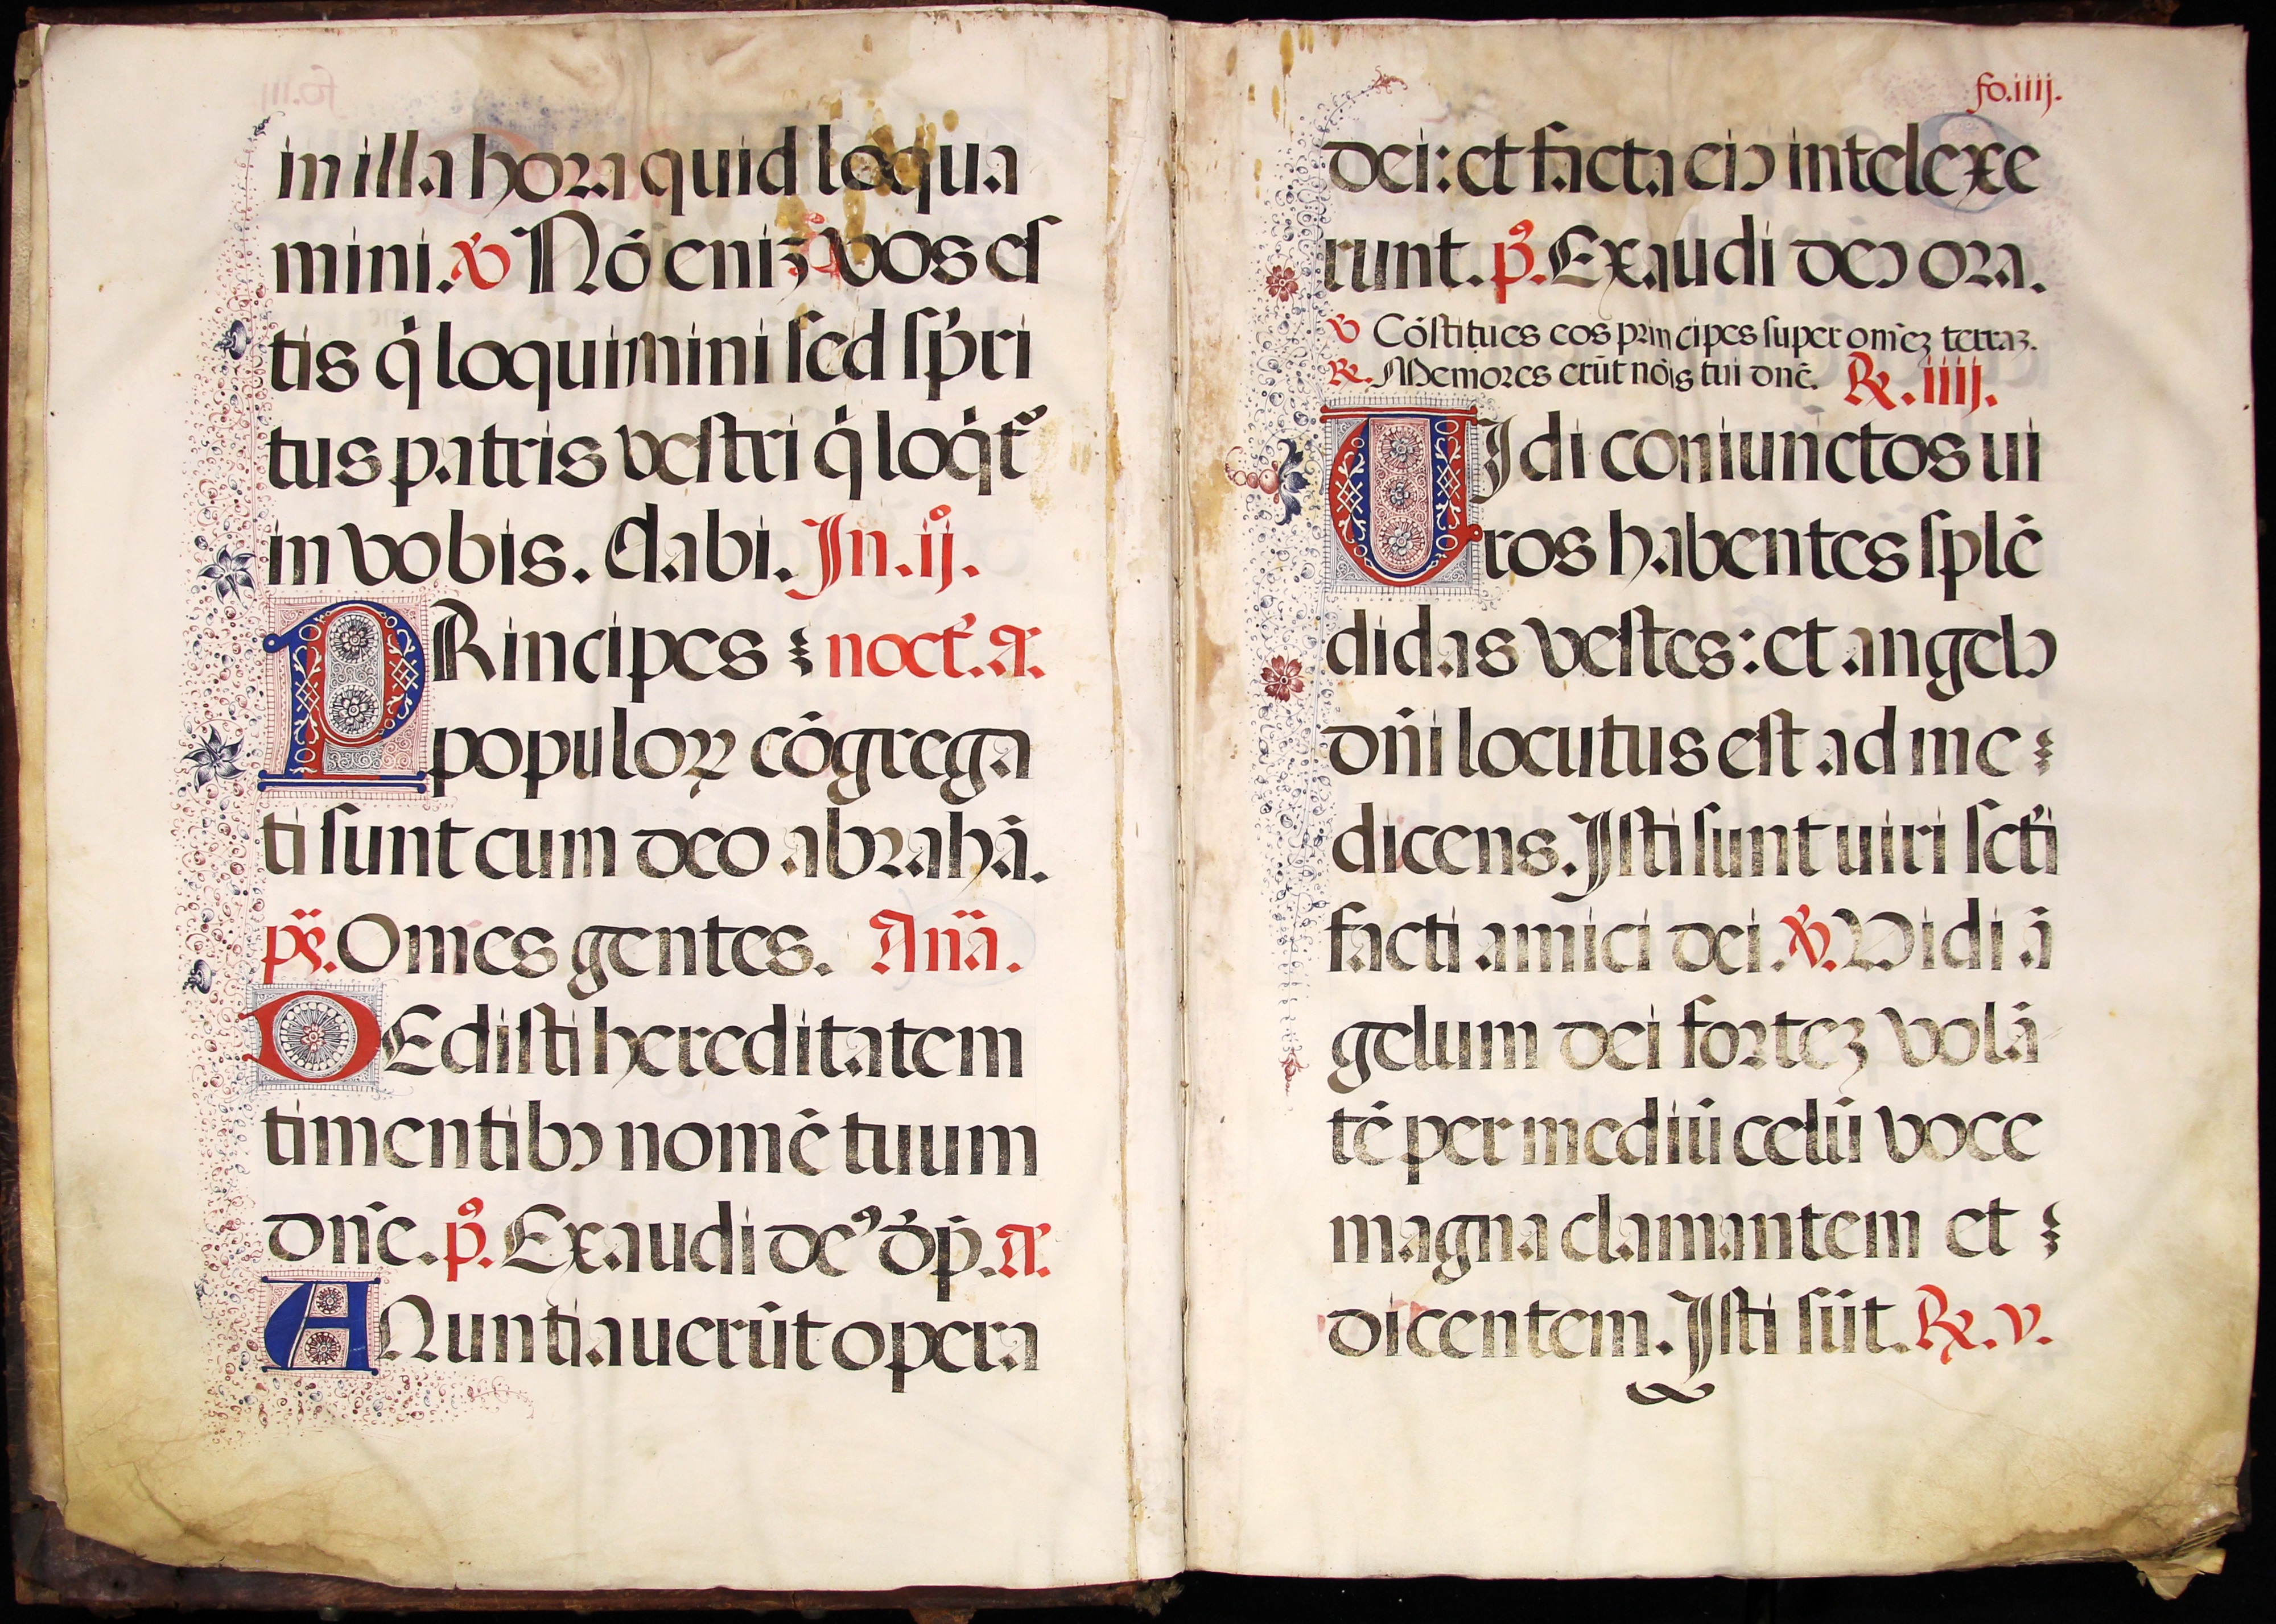 in illa hora quid loqua
mini. ℣ Nō eniꝫ vos eſ
tis q̇ loquimini ſed ſp̄ri
tus patris veſtri q̇ loq̇t᷑
in vobis. Dabi. In .ij̊.
PRincipes noct᷑. A᷑.
populoꝝ cōgrega
ti ſunt cum deo abrahā.
p̈s. Omes gentes. An̈a.
DEdiſti hereditatem
timentibꝰ nomē tuum
dn̄e. p̊. Exaudi deꝰ d̄p̄. A᷑.
ANuntiauerūt opera
fo.iiij.
dei: et facta eiꝰ intelexe
runt. p̊. Exaudi deꝰ ora.
℣ Cōſtitues eos principes ſuper om̄eꝫ terraꝫ.
℟. Memores erūt nōis tui dn̄e. ℟. iiij.
UIdi coniunctos ui
ros habentes ſplē
didas veſtes: et angelꝰ
dn̄i locutus eſt ad me
dicens. Iſti ſunt uiri ſcti̇
facti amici dei. ℣. Vidi ā
gelum dei forteꝫ volā
tē per mediū celū voce
magna clamantem et
dicentem. Iſti ſūt. ℟. v.